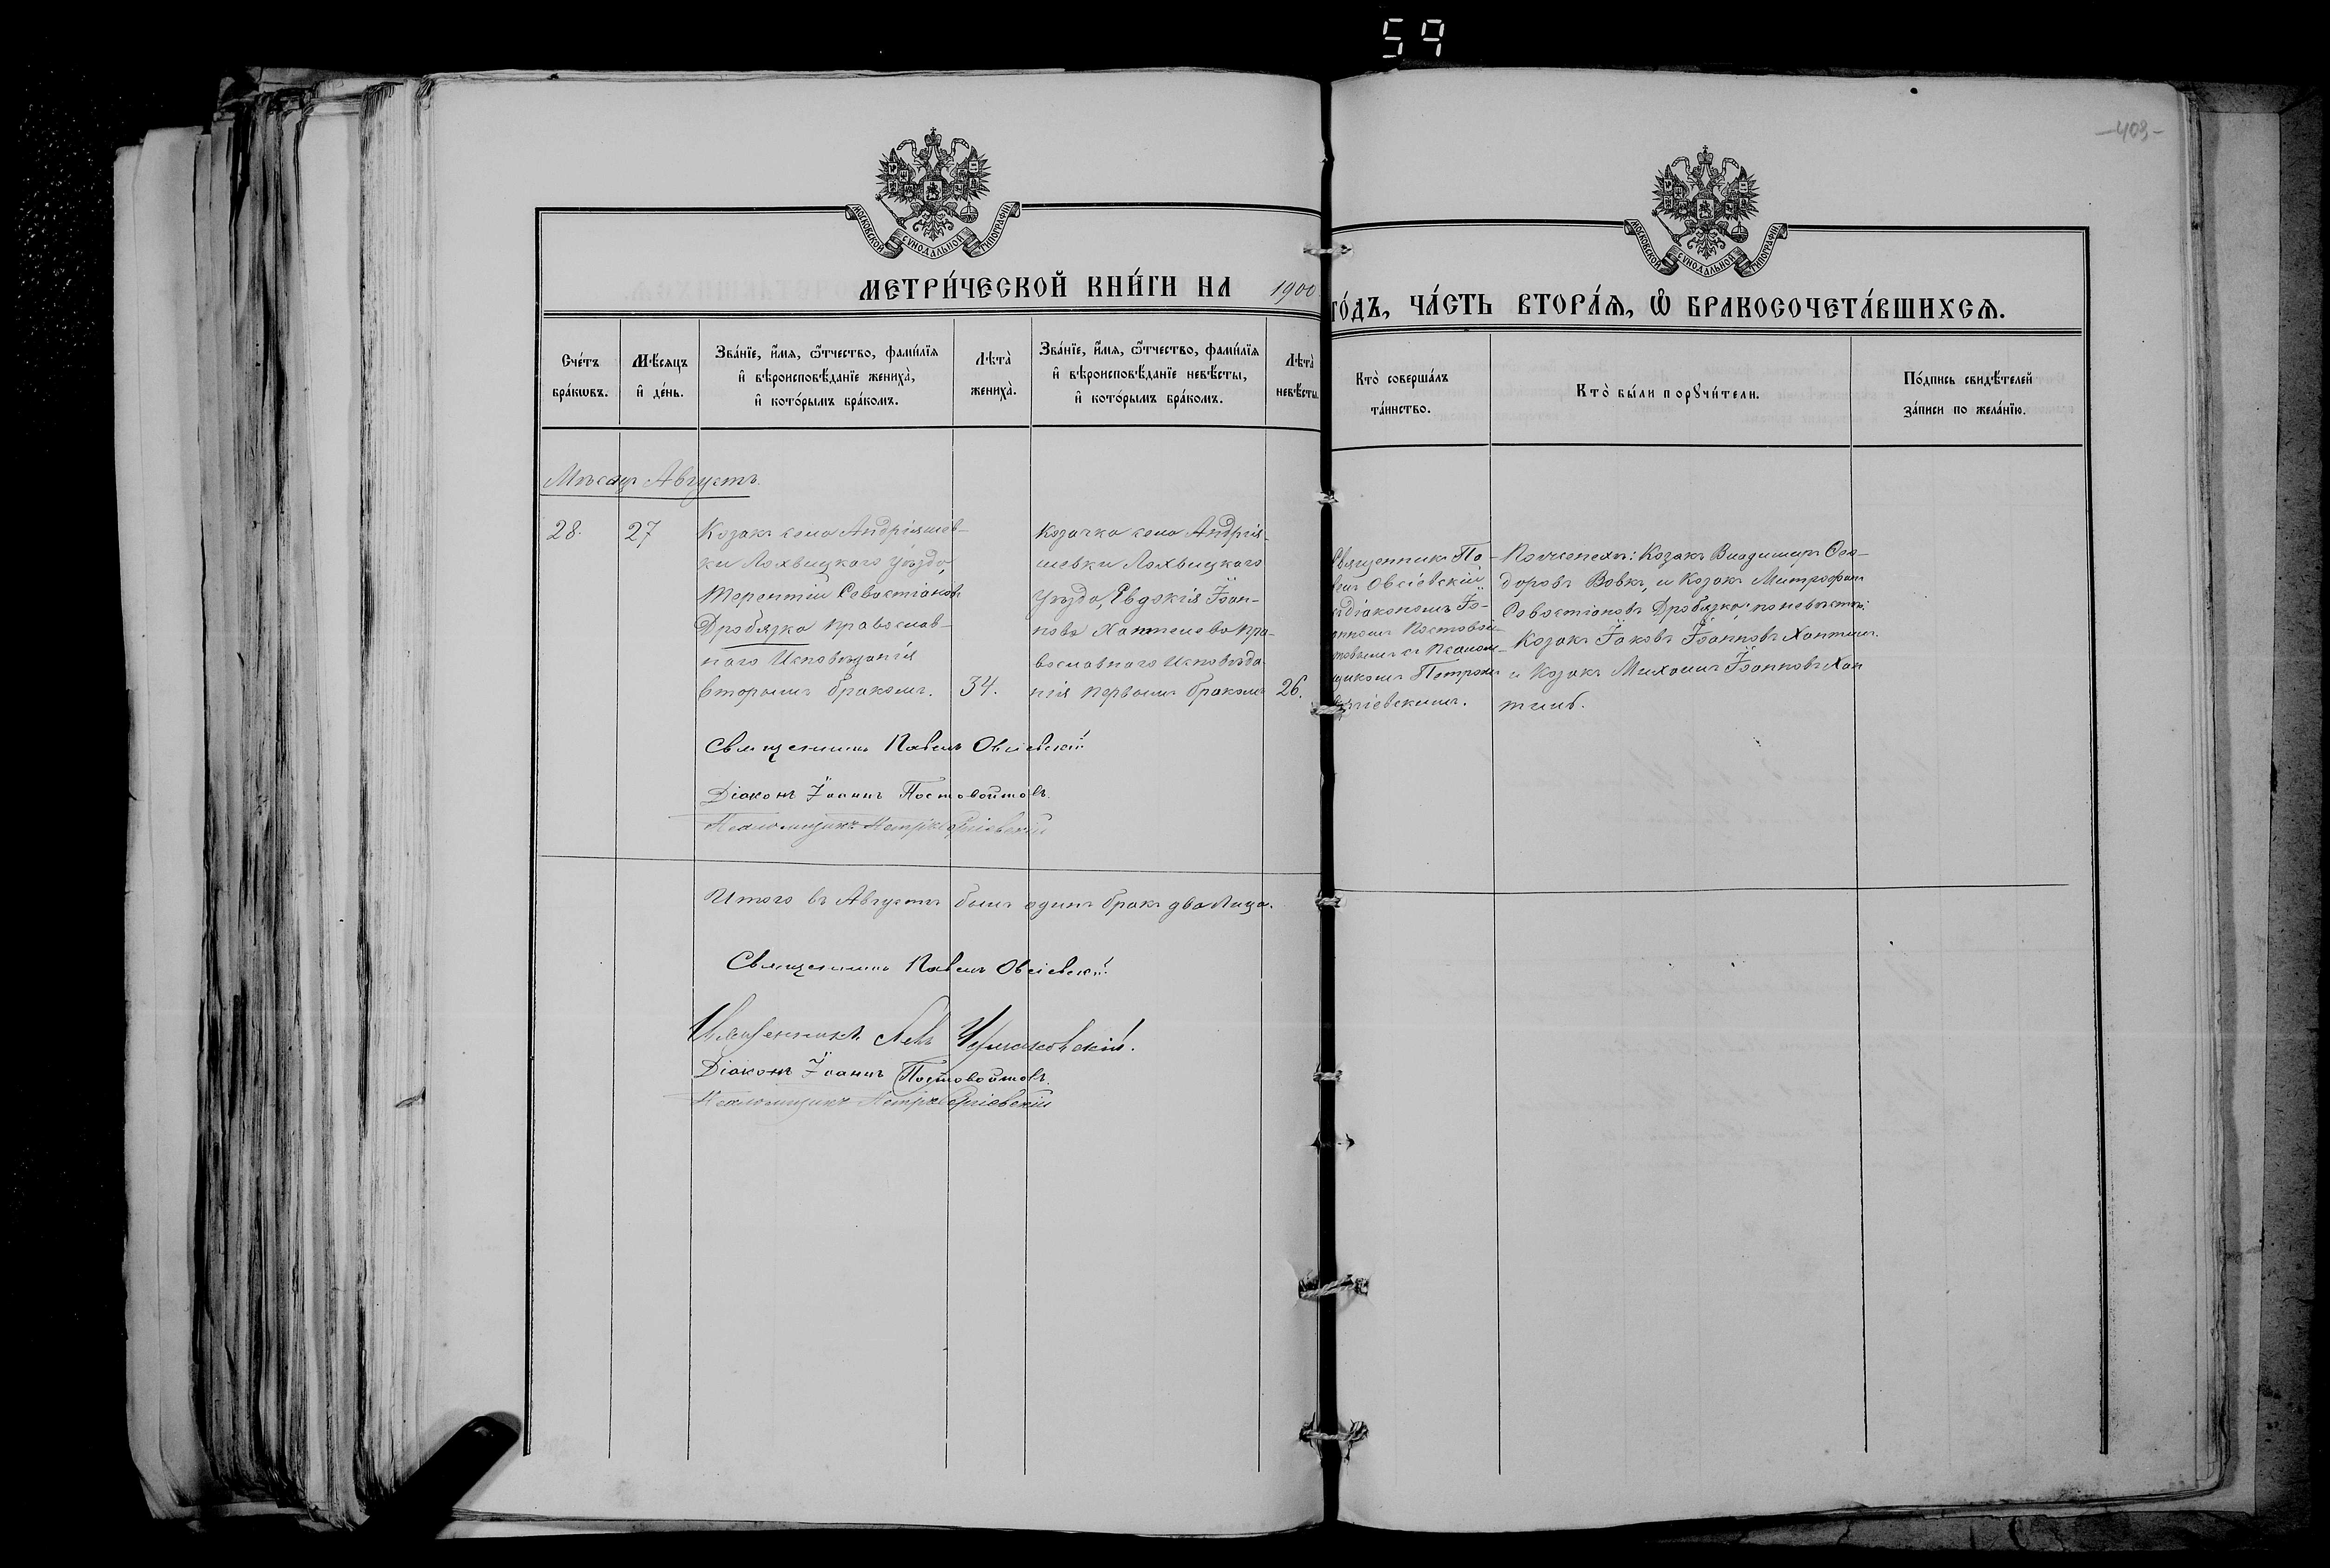 59
-403-
МОСКОВСКОЙ СУНОДАЛЬНОЙ ТИПОГРАФІИ
МОСКОВСКОЙ СУНОДАЛЬНОЙ ТИПОГРАФІИ
МЕТРИ́ЧЕСКОЙ КНИ́ГИ НА 1900
ГО́ДЪ, ЧА́СТЬ ВТОРА́Ѧ, Ѽ БРАКОСОЧЕТА́ВШИХСѦ.
Сче́тъ
бра́кѡвъ.
Мѣ́сяцъ
и҆ де́нь.
Зва́нїе, и҆́мя, ѻ҆́тчество, фами́лїя
и҆ вѣроисповѣ́данїе жениха̀,
и҆ кото́рымъ бра́комъ.
Лѣта̀
жениха̀.
Зва́нїе, и҆́мя, ѻ҆́тчество, фами́лїя
и҆ вѣроисповѣ́данїе невѣ́сты,
и҆ кото́рымъ бра́комъ.
Лѣта̀
невѣ́сты.
Кто̀ соверша́лъ
та́инство.
Кто̀ бы́ли порꙋчи́тели.
По́дпись свидѣ́телей
за́писи по жела́нїю.
Мѣсяцъ Августъ.
28.
27
Козакъ села Андріяшев-
ки Лохвицкаго уѣзда,
Терентій Севастіановъ
Дробязка православ-
наго Исповѣданія
вторымъ бракомъ.
34.
Козачка села Андрія-
шевки Лохвицкаго
уѣзда, Евдокія Іоан-
нова Хаптелева пра-
вославнаго Исповѣда
нія первымъ бракомъ
26.
Священникъ Па-
велъ Овсіевскій
съ діакономъ Іо-
анномъ Постовой-
товымъ съ Псалом-
щикомъ Петромъ
Сергіевскимъ.
По женихѣ: Козакъ Владимиръ Ѳео-
доровъ Вовкъ, и Козакъ Митрофанъ
Севастіановъ Дробязка; по невѣстѣ:
Козакъ Іаковъ Іоанновъ Хаптиль.
и Козакъ Михаилъ Іоанновъ Хап
тиль.
Священникъ Павелъ Овсіевскій
Діаконъ Іоаннъ Постовойтовъ.
Псаломщикъ Петръ Сергіевскій
Итого въ Августѣ былъ одинъ бракъ два лица.
Священникъ Павелъ Овсіевскій
Священникъ Левъ
Діаконъ Іоаннъ Постовойтовъ.
Псаломщикъ Петръ Сергіевскій